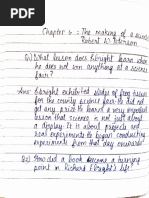 Chapter 6 : The making of a scientist
Robert W. Peterson
Q) What lesson does Ebright learn when
he does not win anything at a science
fair?
Ans: Ebright exhibited slides of frog tissue
for the county science fair. He did not
get any prize
lesson that science is not just about
a display. It is about projects and
real experiments. He began conducting
experiments from that day onwards.
Q2) How did a book become a turning
point in Richard Ebright's life?